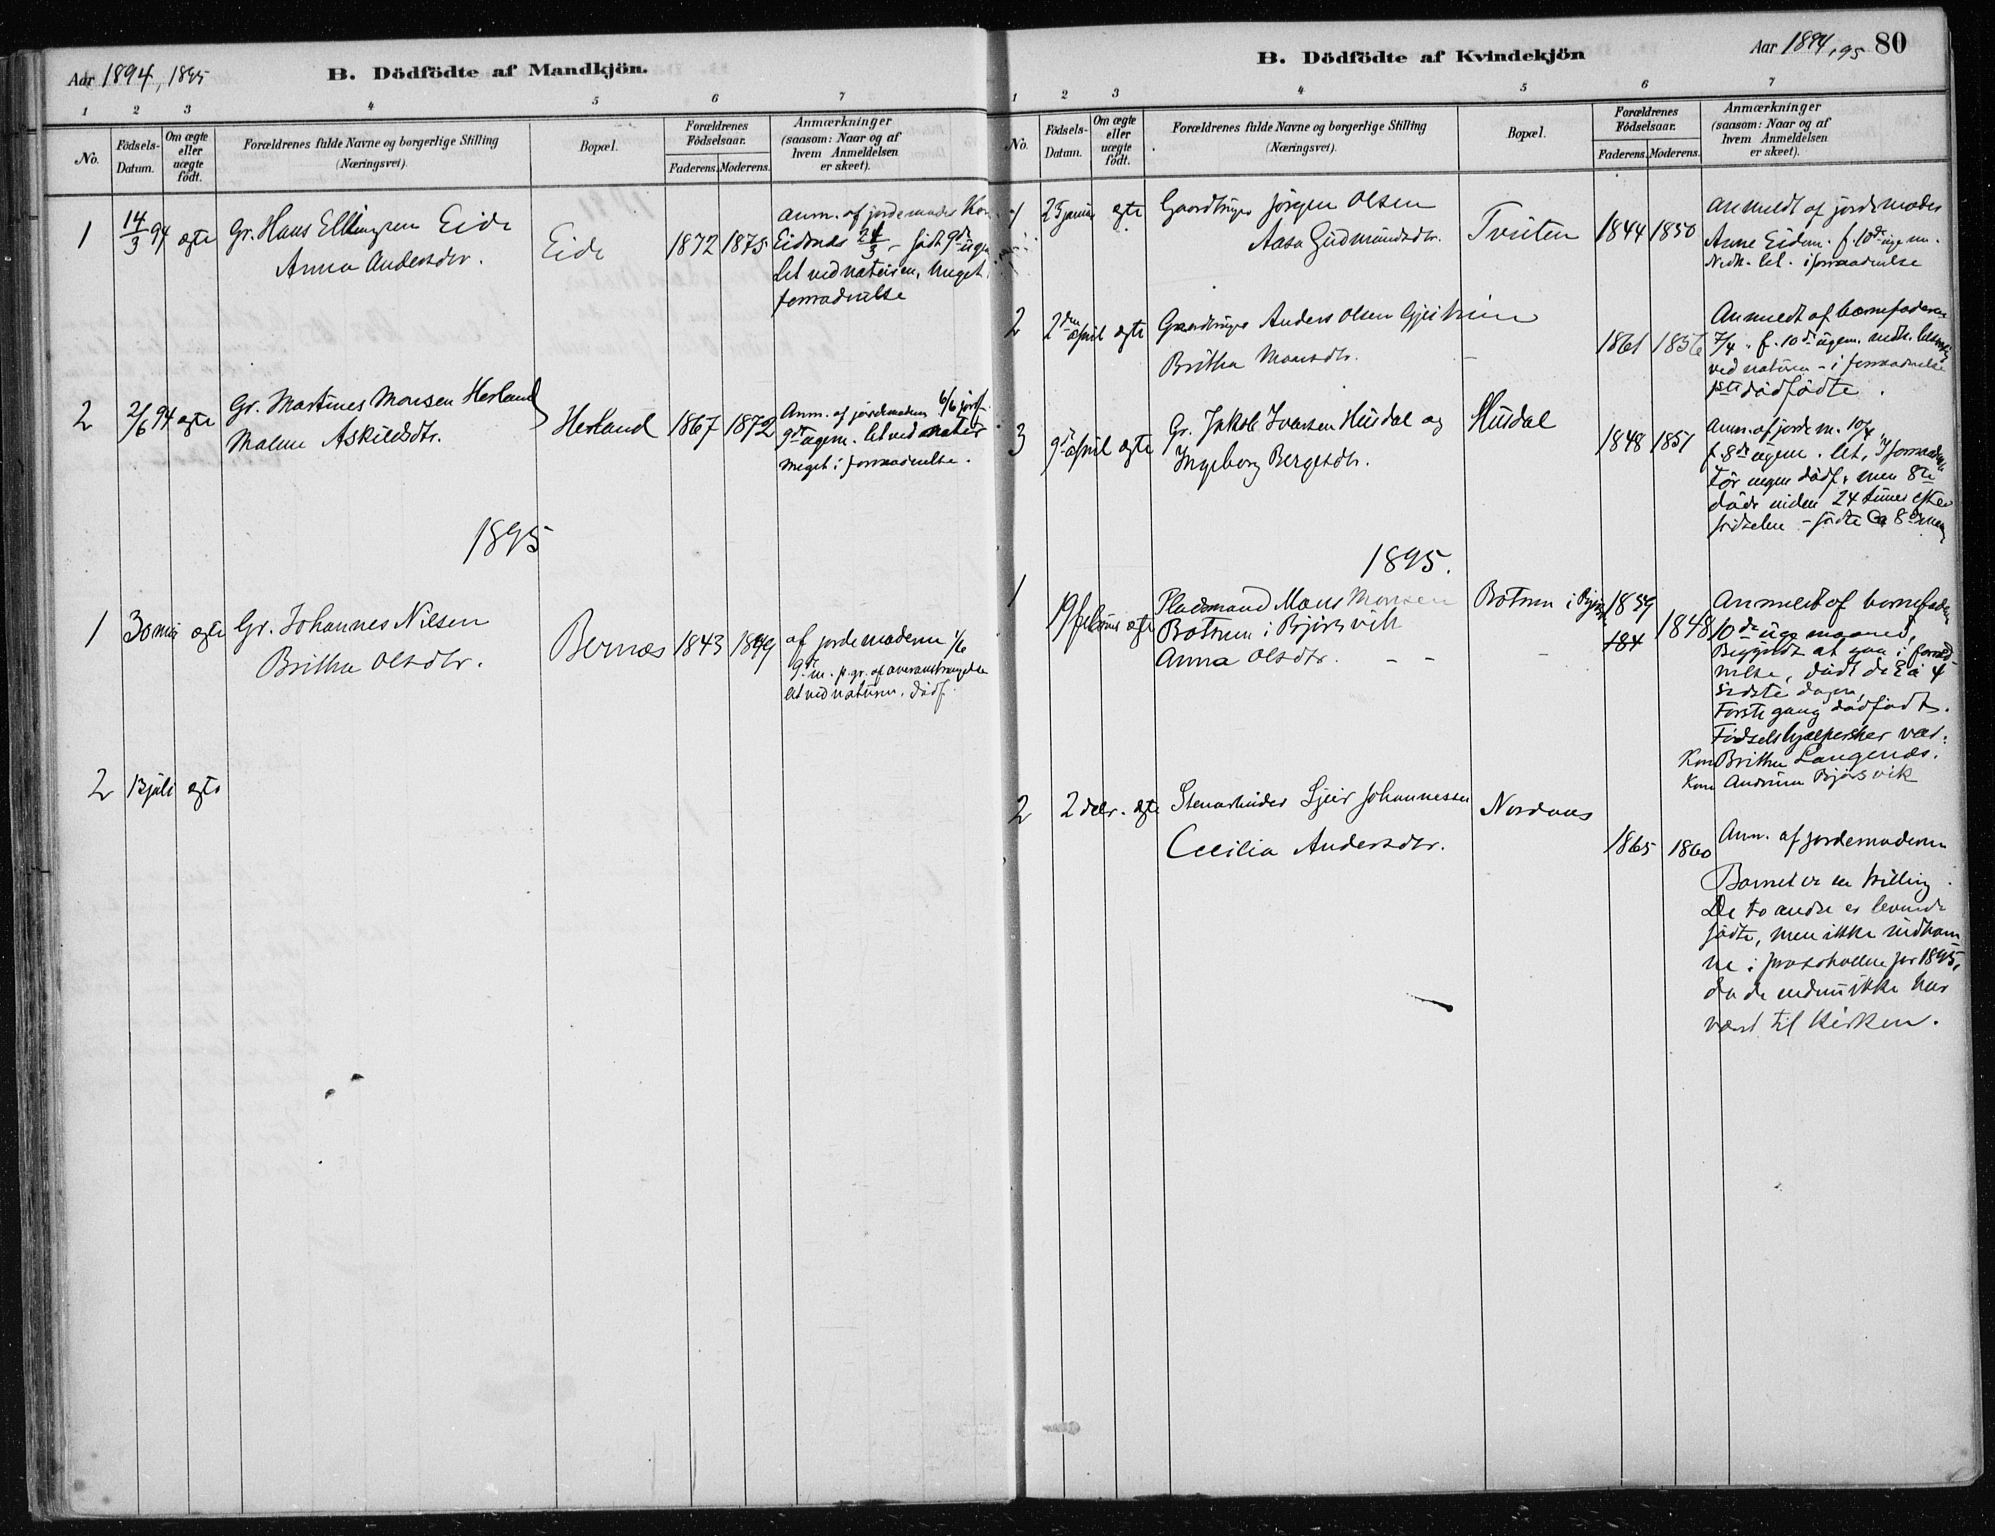 Aar 1894, 1895
B. Dödfödte af Mandkjön.
1 2 3 4 5 6 7
No.
Födsels-
Datum.
Om ægte
eller
uægte
födt.
Forældrenes fulde Navne og borgerlige Stilling
(Næringsvei).
Bopæl.
Forældrenes
Födselsaar.
Faderens. Moderens.
Anmærkninger
(saasom: Naar og af
hvem Anmeldelsen
er skeet).
1 14/3 94 ægte Gr. Hans Ellingsen Eide
Anna Andersdtr.
Eide 1872 1875
Anm. af jordemoder Kon
Eidsnes 24/3 - født 9de
let ved naturen, meget
forraadnelse
2 2/6 94 ægte Gr. Martines Monsen Herland
Malene Askildsdtr.
Herland 1867 1872
Anm. af jordemoderen 6/6
9de ugem. let ved natur
meget i forraadnelse.
1895
1 30 mai ægte Gr. Johannes Nilsen
Britha Olsdtr.
Bernæs 1843 1849
af jordemoderen 1/6
9de m. p. gr. af overanstrengelse
let ved naturen. dödf.
2 13 juli ægte
B. Dödfödte af Kvindekjön
Aar 1894, 95 80
1 2 3 4 5 6 7
No.
Födsels-
Datum.
Om ægte
eller
uægte
födt.
Forældrenes fulde Navne og borgerlige Stilling
(Næringsvei).
Bopæl.
Forældrenes
Födselsaar.
Faderens. Moderens.
Anmærkninger
(saasom: Naar og af
hvem Anmeldelsen
er skeet).
1 25 januar ægte Gaardbruger Jörgen Olsen
Aasa Gudmundsdtr.
Tveiten 1844 1850
Anmeldt af jordemoder
Anne Eidsn. f. 10de uge m.
Nedk. let. i forraadnelse
2 2den april ægte Gaardbruger Anders Olsen Gjeitrein
Britha Monsdtr. -
1861 1856
Anmeldt af barnefaderen
7/4. f. 10de ugem. nedk.
ved naturen - i forraadnelse
1ste dödfödte.
3 9de april ægte Gr. Jakob Ivarsen Husdal og
Ingeborg Bergesdtr.
Husdal
1848 1851
Anm. af jordem. 10/4
f. 8de ugem. let,
För ingen dödf. men 8de
døde inden 24 timer efter
födselen - födte
1895.
1 19 februar ægte Pladsmand Mons Monsen
Botnen i Bjørsvik
Anna Olsdtr. - -
Botnen i Bjørsv.
1859
184 1848
Anmeldt af barnefaderen
10de uge maaned,
Begyndt at gaa i forraad-
nelse, dødt de 3 à 4
sidste dage,
Første gang dødfødt.
Fødselshjælpersker var:
Kone Britha Langenæs.
Kone Andrina Bjørsvik
2 2 debr. ægte Stenarbeider Sjeir Johannessen
Cecilia Andersdtr.
Nordanes
1865 1860
Anm. af jordemoderen
Barnet er en trilling.
De to andre er levende
födte, men ikke indkom-
ne i protokollen for 1895,
da de endnu ikke har
været til kirken.